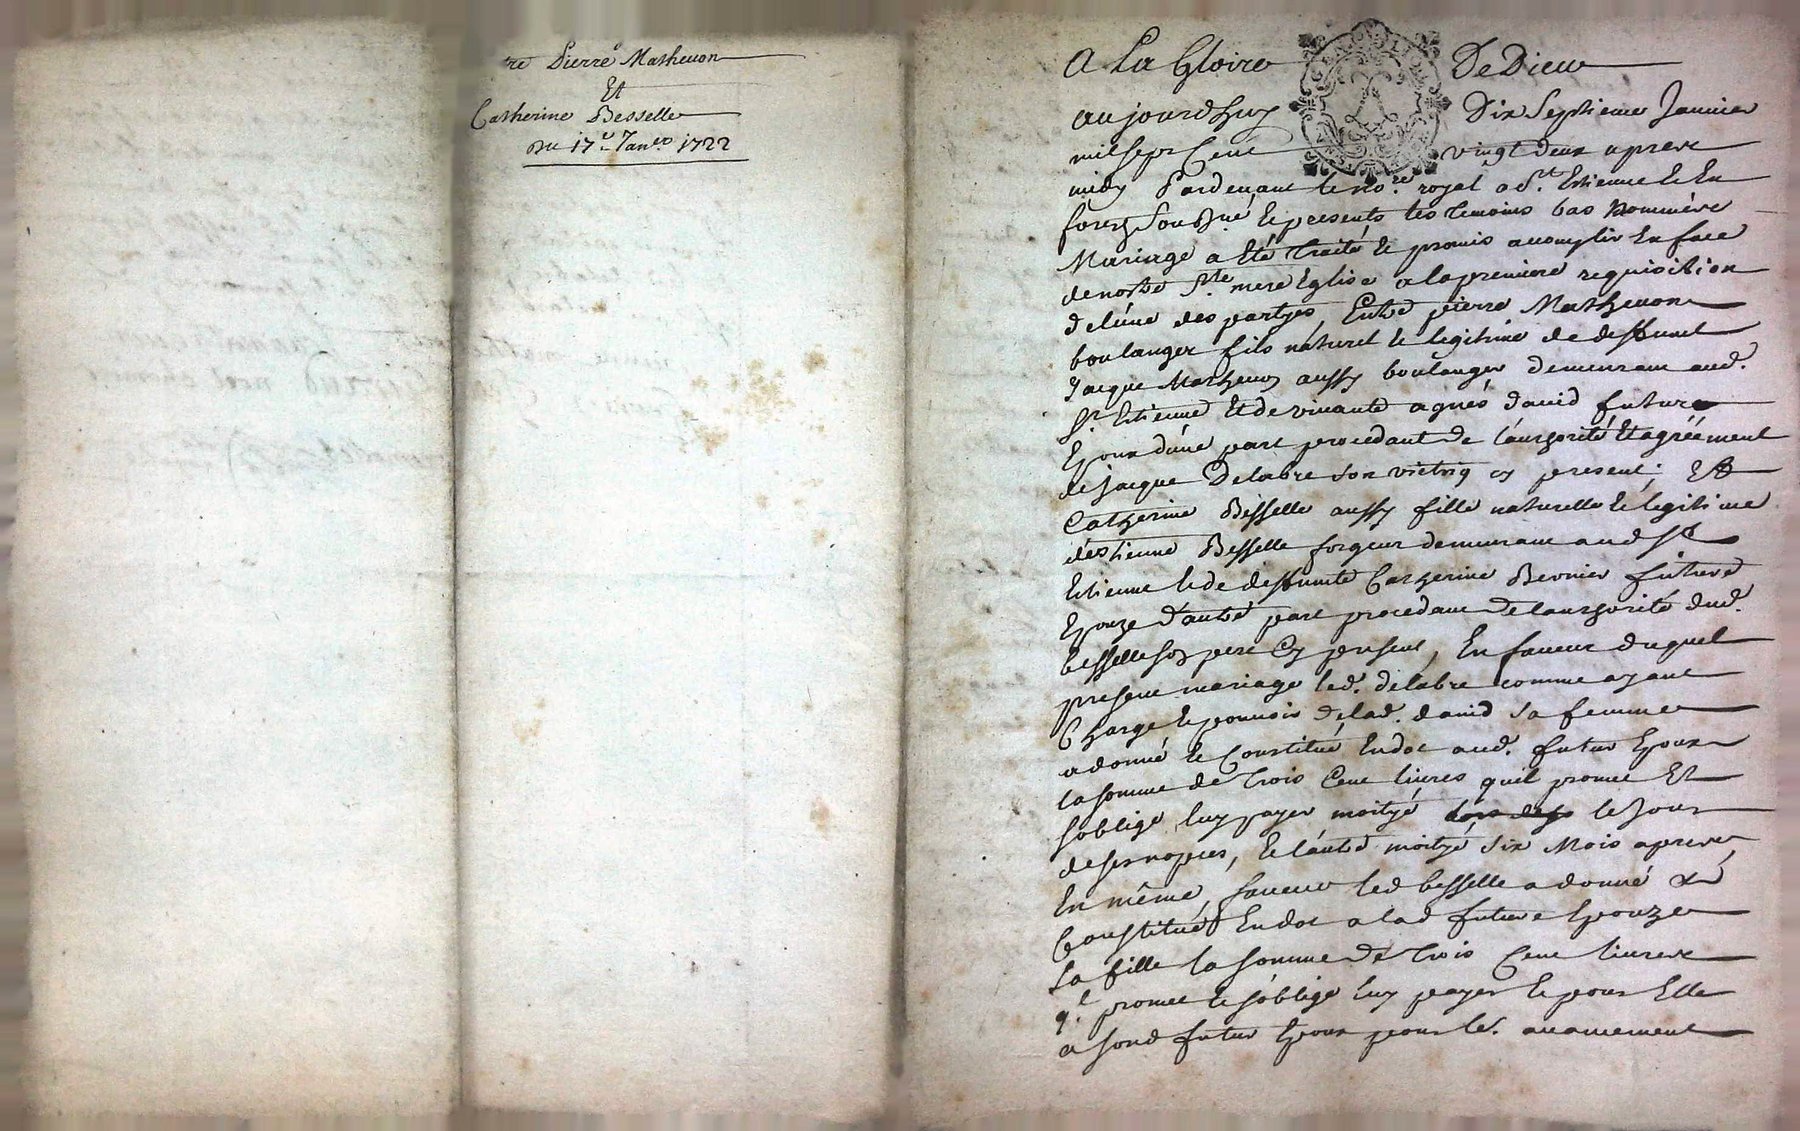 tre Pierre Matheuon
Et
Catherine Besselle
Du 17e Janer 1722
A La Gloire De Dieu
aujourdhuy Dix Septieme Januier
mil sept Cent vingt deux apres
midy Pardeuant le nore. royal a St. Estienne le En
forestz Sousné, le presents les Temoins bas nommées
Mariage a Eté Traité le promis accomplir En face
de nostre Ste. mere Eglise a la premiere requisition
deluné des partyes, Entre pierre Matheuon
boulanger fils naturel le legitime de deffunct
Jacque Matheuon aussy boulanger demeurant aud.
St. Estienne Et de viuante agnés dauid futur
Epoux dune part procedant de l'authorité Et agréement
de Jacque Delabre son vittrig cy present; Et
Catherine Besselle aussy fille naturelle le legitime
destienne Besselle forgeur demeurant aud St
Estienne le de deffuncte Catherine Bernier future
Epouze dautre part procedant de lauthorité dud.
besselle son pere Cy present, En faueur duquel
present mariage led. delabre comme ayant
Charge le pouuoir delad. dauid sa femme
a donné le Constitué En dot aud. futur Epoux
la somme de Trois Cent liures quil promet Et
soblige luy payer moityé le Jour
de ses nopces, le lautre moityé six Mois apres,
En même faueur led besselle a donné Et
Constitué En dot a lad future Epouze
sa fille la somme de Trois Cent liures
ql. promet le soblige luy payer le pour Elle
a sond futur Epoux pour le. auancement